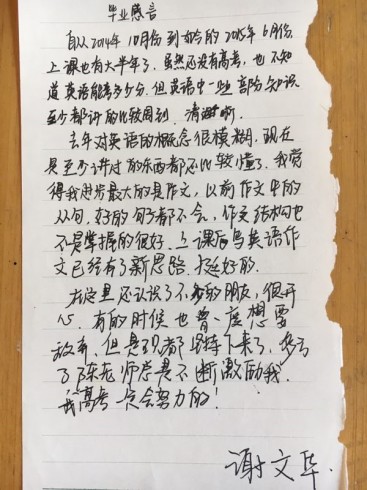 毕业感言
自从2014年10月份到如今的2015年6月份,
上课也有大半年了.虽然还没有高考,也不知
道英语能考多少分.但英语中一些部分知识
至少都讲的比较周到.清晰啊.
去年对英语的概念很模糊.现在
是至少讲过的东西都还比较懂了.我觉
得我进步最大的是作文,以前作文中的
从句,好的句子都不会.作文结构也
不是掌握的很好.上课后写英语作
文已经有了新思路.挺好的.
在这里还认识了不多的朋友,很开
心.有的时候也曾一度想要
放弃.但是现都坚持下来了.多亏
了陈老师总是不断激励我.
我高考一定会努力的!
谢文华.